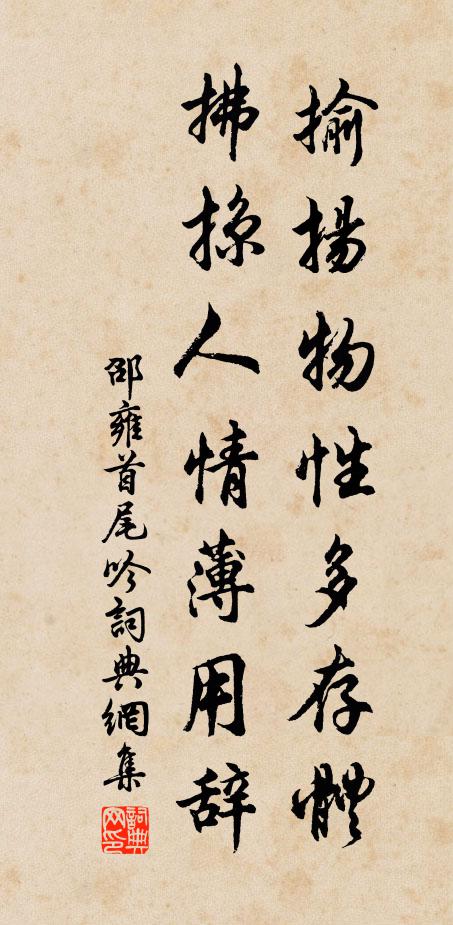 揄揚物性多存體
拂掠人情薄用辞
邵雍首尾吟詞典網集
詞典网印